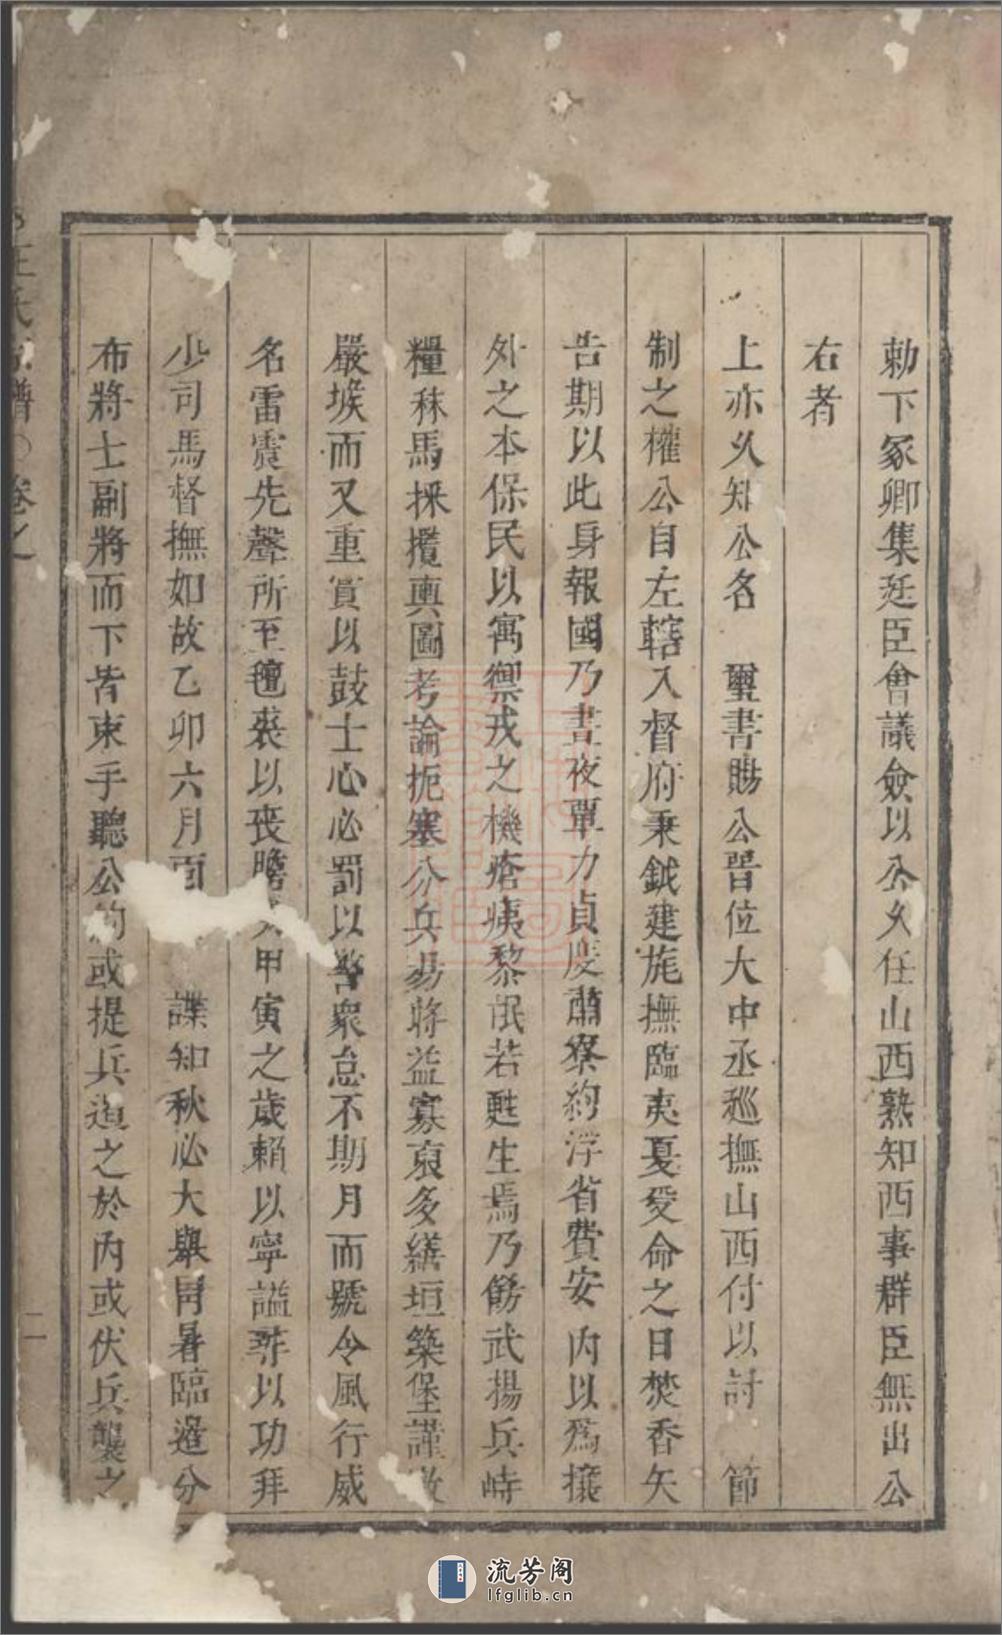 勅下冢卿集廷臣會議僉以公久任山西熟知西事群臣無出公
右者
上亦久知公名 璽書賜公晉位大中丞廵撫山西付以討 節
制之權公自左轄入督府秉鉞建旄撫臨夷夏受命之日焚香矢
告期以此身報國乃晝夜覃力貞度肅寮約浮省費安內以爲攘
外之本保民以寓禦戎之機瘡痍黎氓若甦生焉乃飭武揚兵峙
糧秣馬採攬輿圖考論扼塞分兵易將益寡裒多繕垣築堡謹
嚴堠而又重賞以鼓士心必罰以警衆怠不期月而號令風行威
名雷震先聲所至氊裘以喪膽 甲寅之歲賴以寧謐 以功拜
少司馬督撫如故乙卯六月 諜知秋必大舉冐暑臨邉分
布將士副將而下皆束手聽公約或提兵 之於內或伏兵襲之
王氏 譜 卷之
二
流芳阁
lfglib.cn